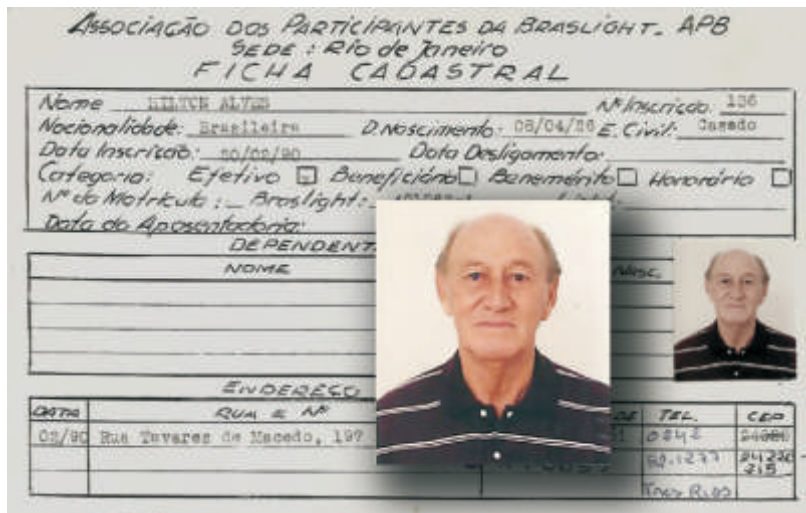 ASSOCIAÇÃO DOS PARTICIPANTES DA BRASLIGHT - APB
SEDE: Rio de Janeiro
FICHA CADASTRAL
Nome HILTON ALVES Nº Inscrição: 136
Nacionalidade: Brasileira D. Nascimento: 08/04/26 E. Civil: Casado
Data Inscrição: Data Desligamento:
Categoria: Efetivo Beneficiário Benemérito Honorário
Nº da Matrícula: Braslight:
Data da Aposentadoria:
DEPENDENT
NOME NASC.
ENDEREÇO
DATA RUA E Nº DE TEL. CEP
02/90 Rua Tavares de Macedo, 197
24220
215
Três Rios